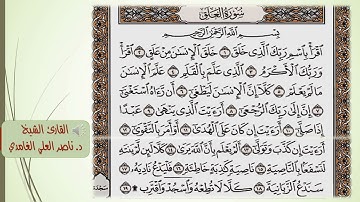 سُورَةُ العَلَقِ
بِسْمِ اللَّهِ الرَّحْمَٰنِ الرَّحِيمِ
اقْرَأْ بِاسْمِ رَبِّكَ الَّذِي خَلَقَ ١ خَلَقَ الْإِنسَٰنَ مِنْ عَلَقٍ ٢ اقْرَأْ
وَرَبُّكَ الْأَكْرَمُ ٣ الَّذِي عَلَّمَ بِالْقَلَمِ ٤ عَلَّمَ الْإِنسَٰنَ
مَا لَمْ يَعْلَمْ ٥ كَلَّا إِنَّ الْإِنسَٰنَ لَيَطْغَىٰ ٦ أَن رَّءَاهُ اسْتَغْنَىٰ
٧ إِنَّ إِلَىٰ رَبِّكَ الرُّجْعَىٰ ٨ أَرَءَيْتَ الَّذِي يَنْهَىٰ ٩ عَبْدًا
إِذَا صَلَّىٰ ١٠ أَرَءَيْتَ إِن كَانَ عَلَى الْهُدَىٰ ١١ أَوْ أَمَرَ بِالتَّقْوَىٰ ١٢
أَرَءَيْتَ إِن كَذَّبَ وَتَوَلَّىٰ ١٣ أَلَمْ يَعْلَم بِأَنَّ اللَّهَ يَرَىٰ ١٤ كَلَّا لَئِن لَّمْ يَنتَهِ
لَنَسْفَعًا بِالنَّاصِيَةِ ١٥ نَاصِيَةٍ كَٰذِبَةٍ خَاطِئَةٍ ١٦ فَلْيَدْعُ نَادِيَهُ ١٧
سَنَدْعُ الزَّبَانِيَةَ ١٨ كَلَّا لَا تُطِعْهُ وَاسْجُدْ وَاقْتَرِب ١٩
سجدة
القارئ الشيخ
د. ناصر العلي الغامدي